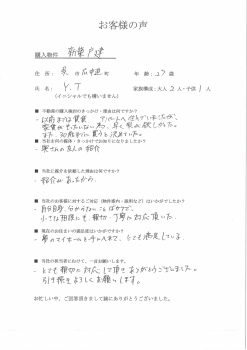 お客様の声
購入物件 新築戸建
住所： 市 町 年齢：27歳
氏名： Y.T 家族構成：大人2人・子供1人
(イニシャルでも構いません)
■ 不動産の購入検討のきっかけ・理由は何ですか？
・以前までは賃貸アパートへ住んでいましたが、
家賃がもったいない為、早く家が欲しかった。
また、30歳までに買うと決めていた。
■ 当社を何の媒体・きっかけでお知りになりましたか？
・奥さんの友人の紹介
■ 当社に続けて依頼した理由は何ですか？
・紹介の
■ 当社のお客様に対するご対応(物件案内・説明など)はいかがでしたか？
・自分自身、分からないことばかりで、
小さな相談にも、親切、丁寧に対応頂いた。
■ 現在のお住まいの満足感はいかがですか？
・夢のマイホームを手に入れて、とても満足している。
■ 当社の担当者にむけて、一言お願いします。
・とても親切に対応して頂きありがとうございました。
引き続きよろしくお願いします。
お忙しい中、ご回答頂きまして誠にありがとうございました。